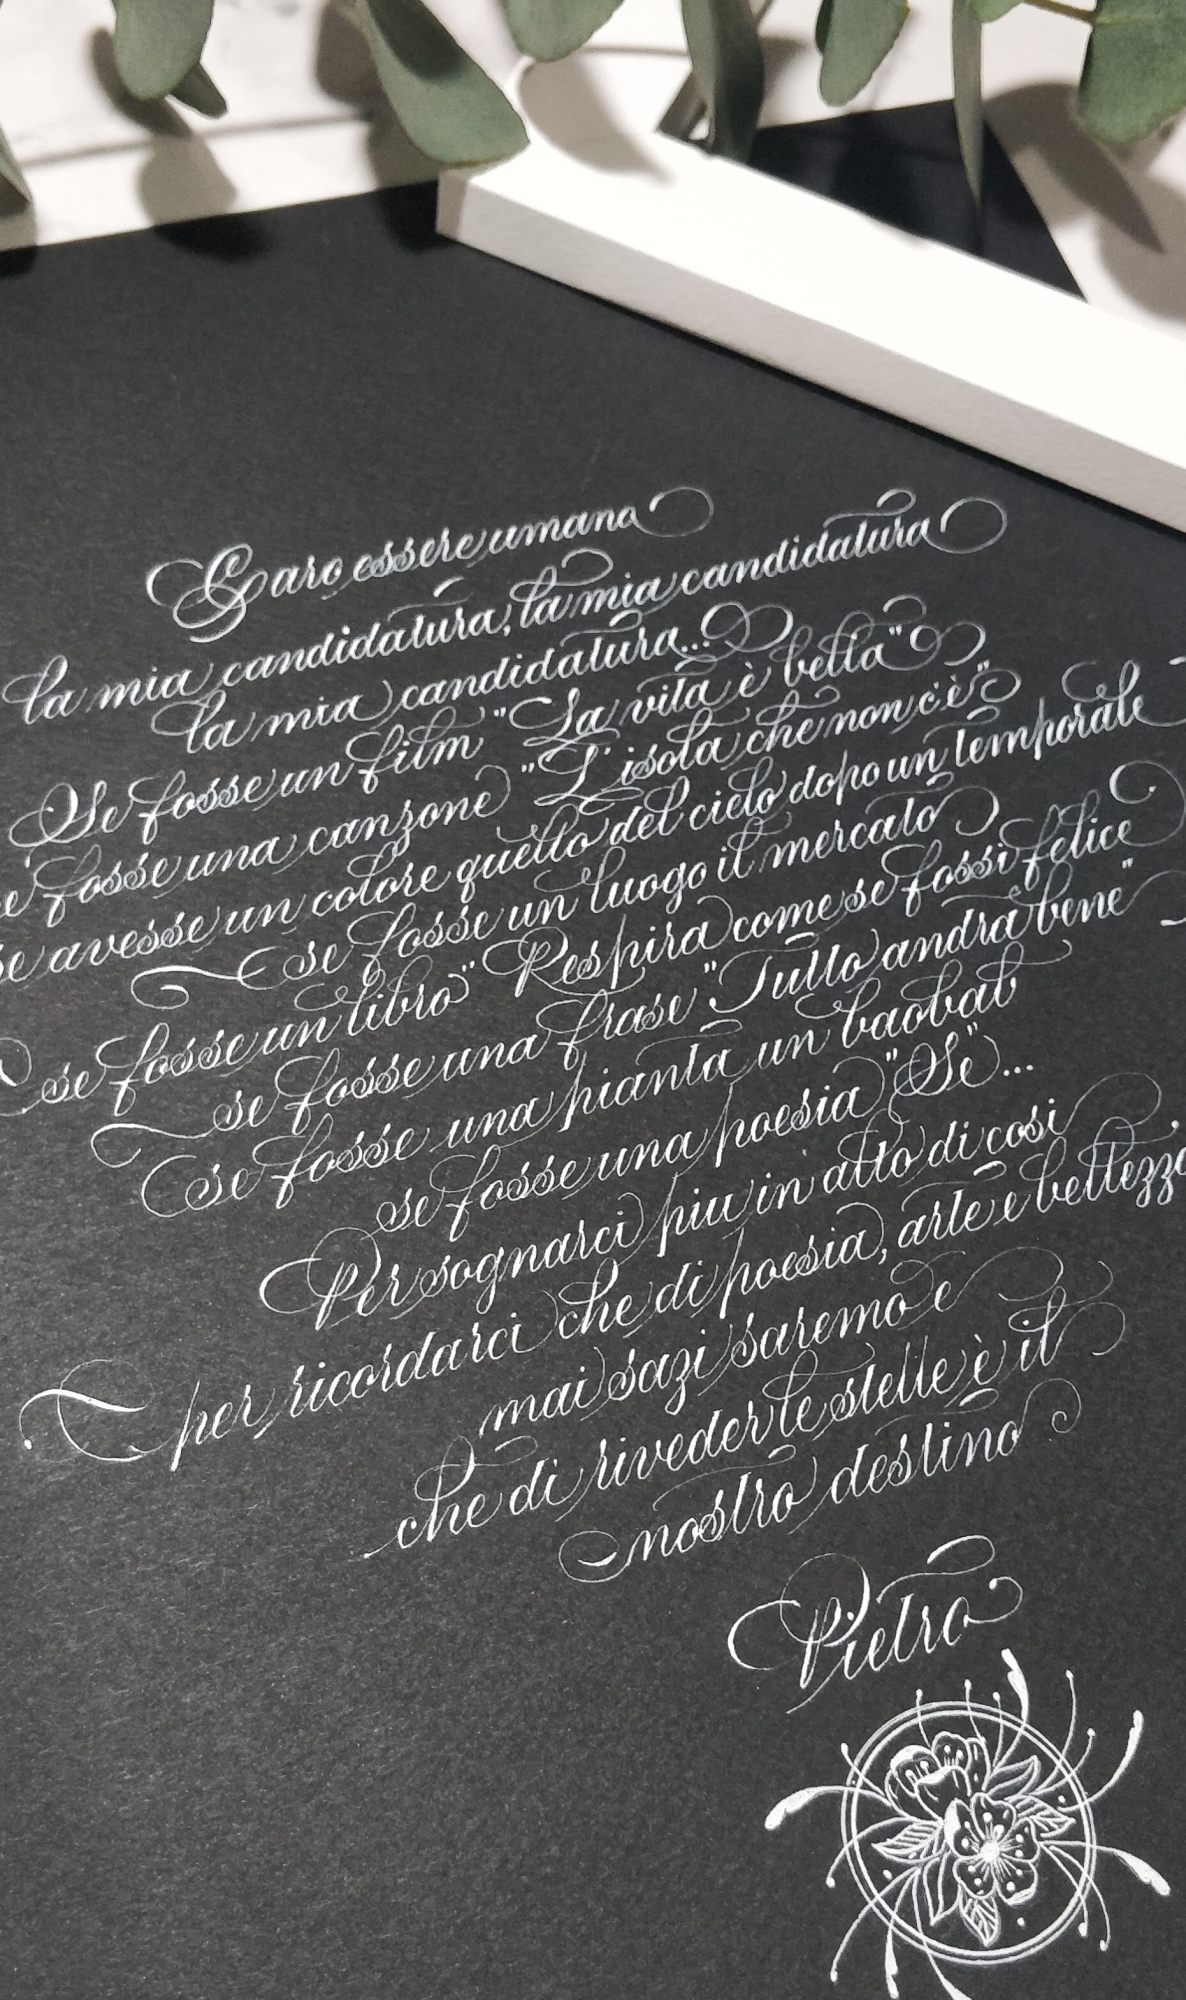 Caro essere umano
la mia candidatura, la mia candidatura
la mia candidatura...
Se fosse un film "La vita è bella"
se fosse una canzone "L'isola che non c'è"
se avesse un colore quello del cielo dopo un temporale
se fosse un luogo il mercato
se fosse un libro "Respira come se fossi felice
se fosse una frase "Tutto andrà bene"
se fosse una pianta un baobab
se fosse una poesia "Se"...
Per sognarci piu in alto di cosi
per ricordarci che di poesia, arte e bellezza
mai sazi saremo e
che di riveder le stelle è il
nostro destino
Pietro